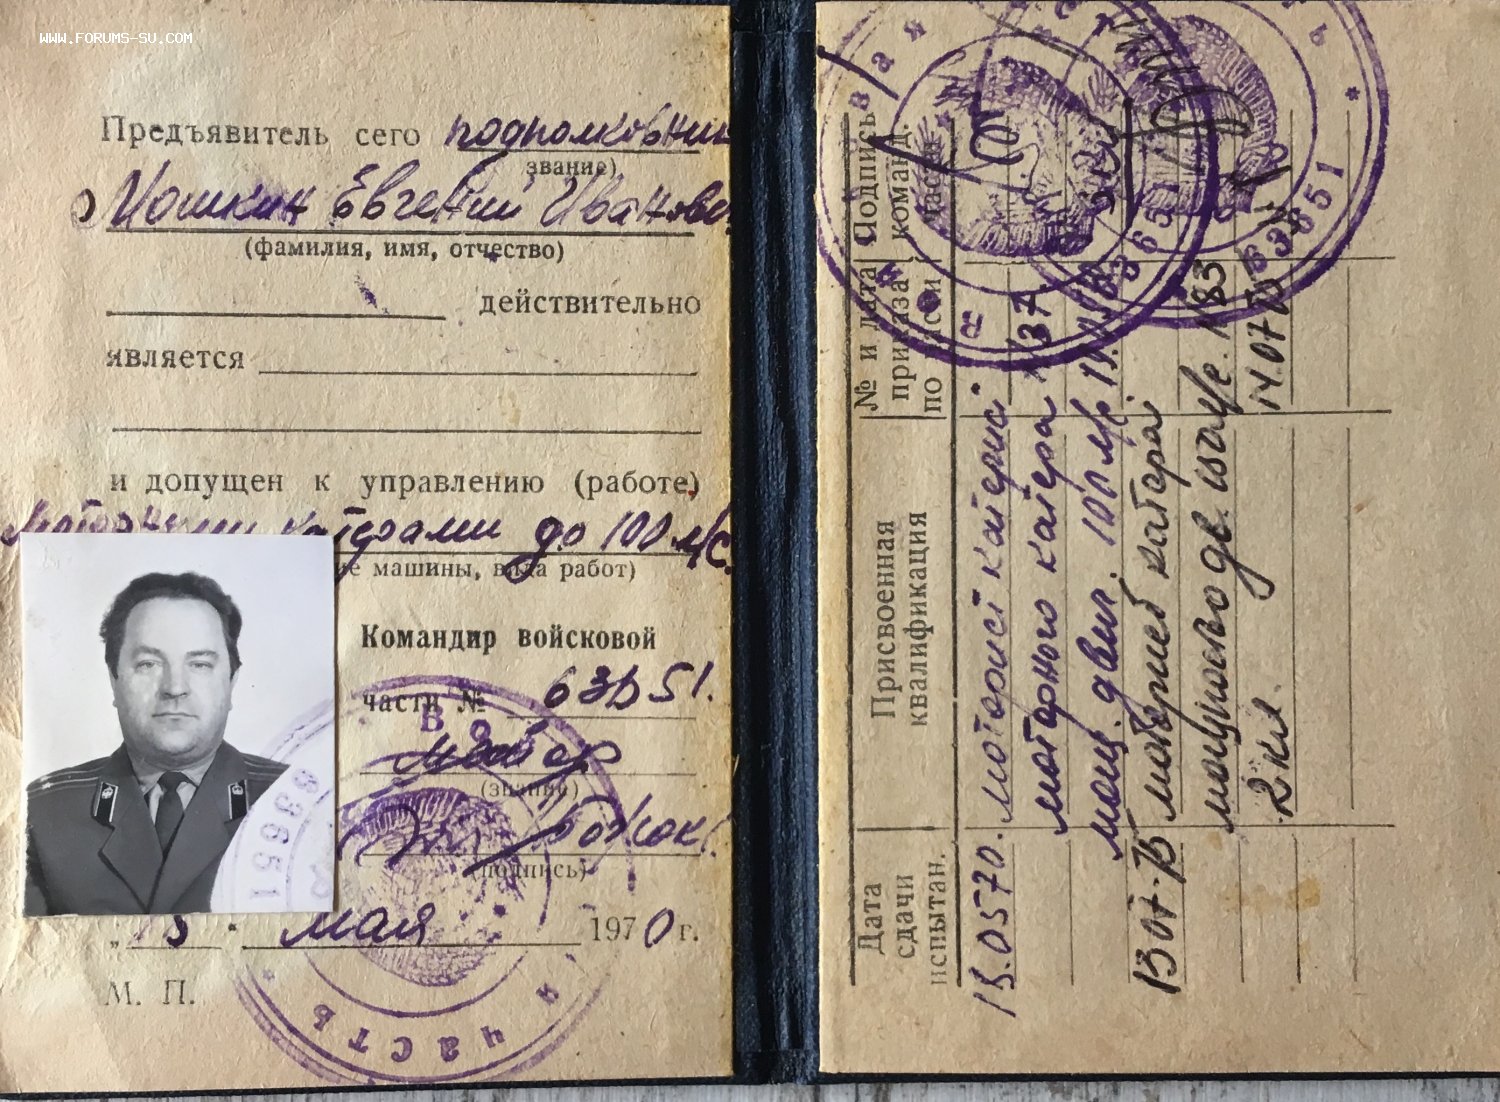 WWW.FORUMS-SU.COM
Предъявитель сего подполковник
(звание)
Мошкин Евгений Иванович
(фамилия, имя, отчество)
действительно
является
и допущен к управлению (работе)
моторными катерами до 100 л/с.
машины, вида работ)
Командир войсковой
части № 63651.
майор
(звание)
(подпись)
" 15 " мая 1970 г.
М. П.
ВО Я ЧАСТЬ
63651
Дата сдачи испытан.
Присвоенная квалификация
№ и дата приказа по части
Подпись команд. части
15.05.70. моторист катерист
моторного катера 137.
мощ. двиг. 100 л/с
13.07.75 моторист катера
мощностью дв. 183
2 кл. 14.07.75
63651
63651